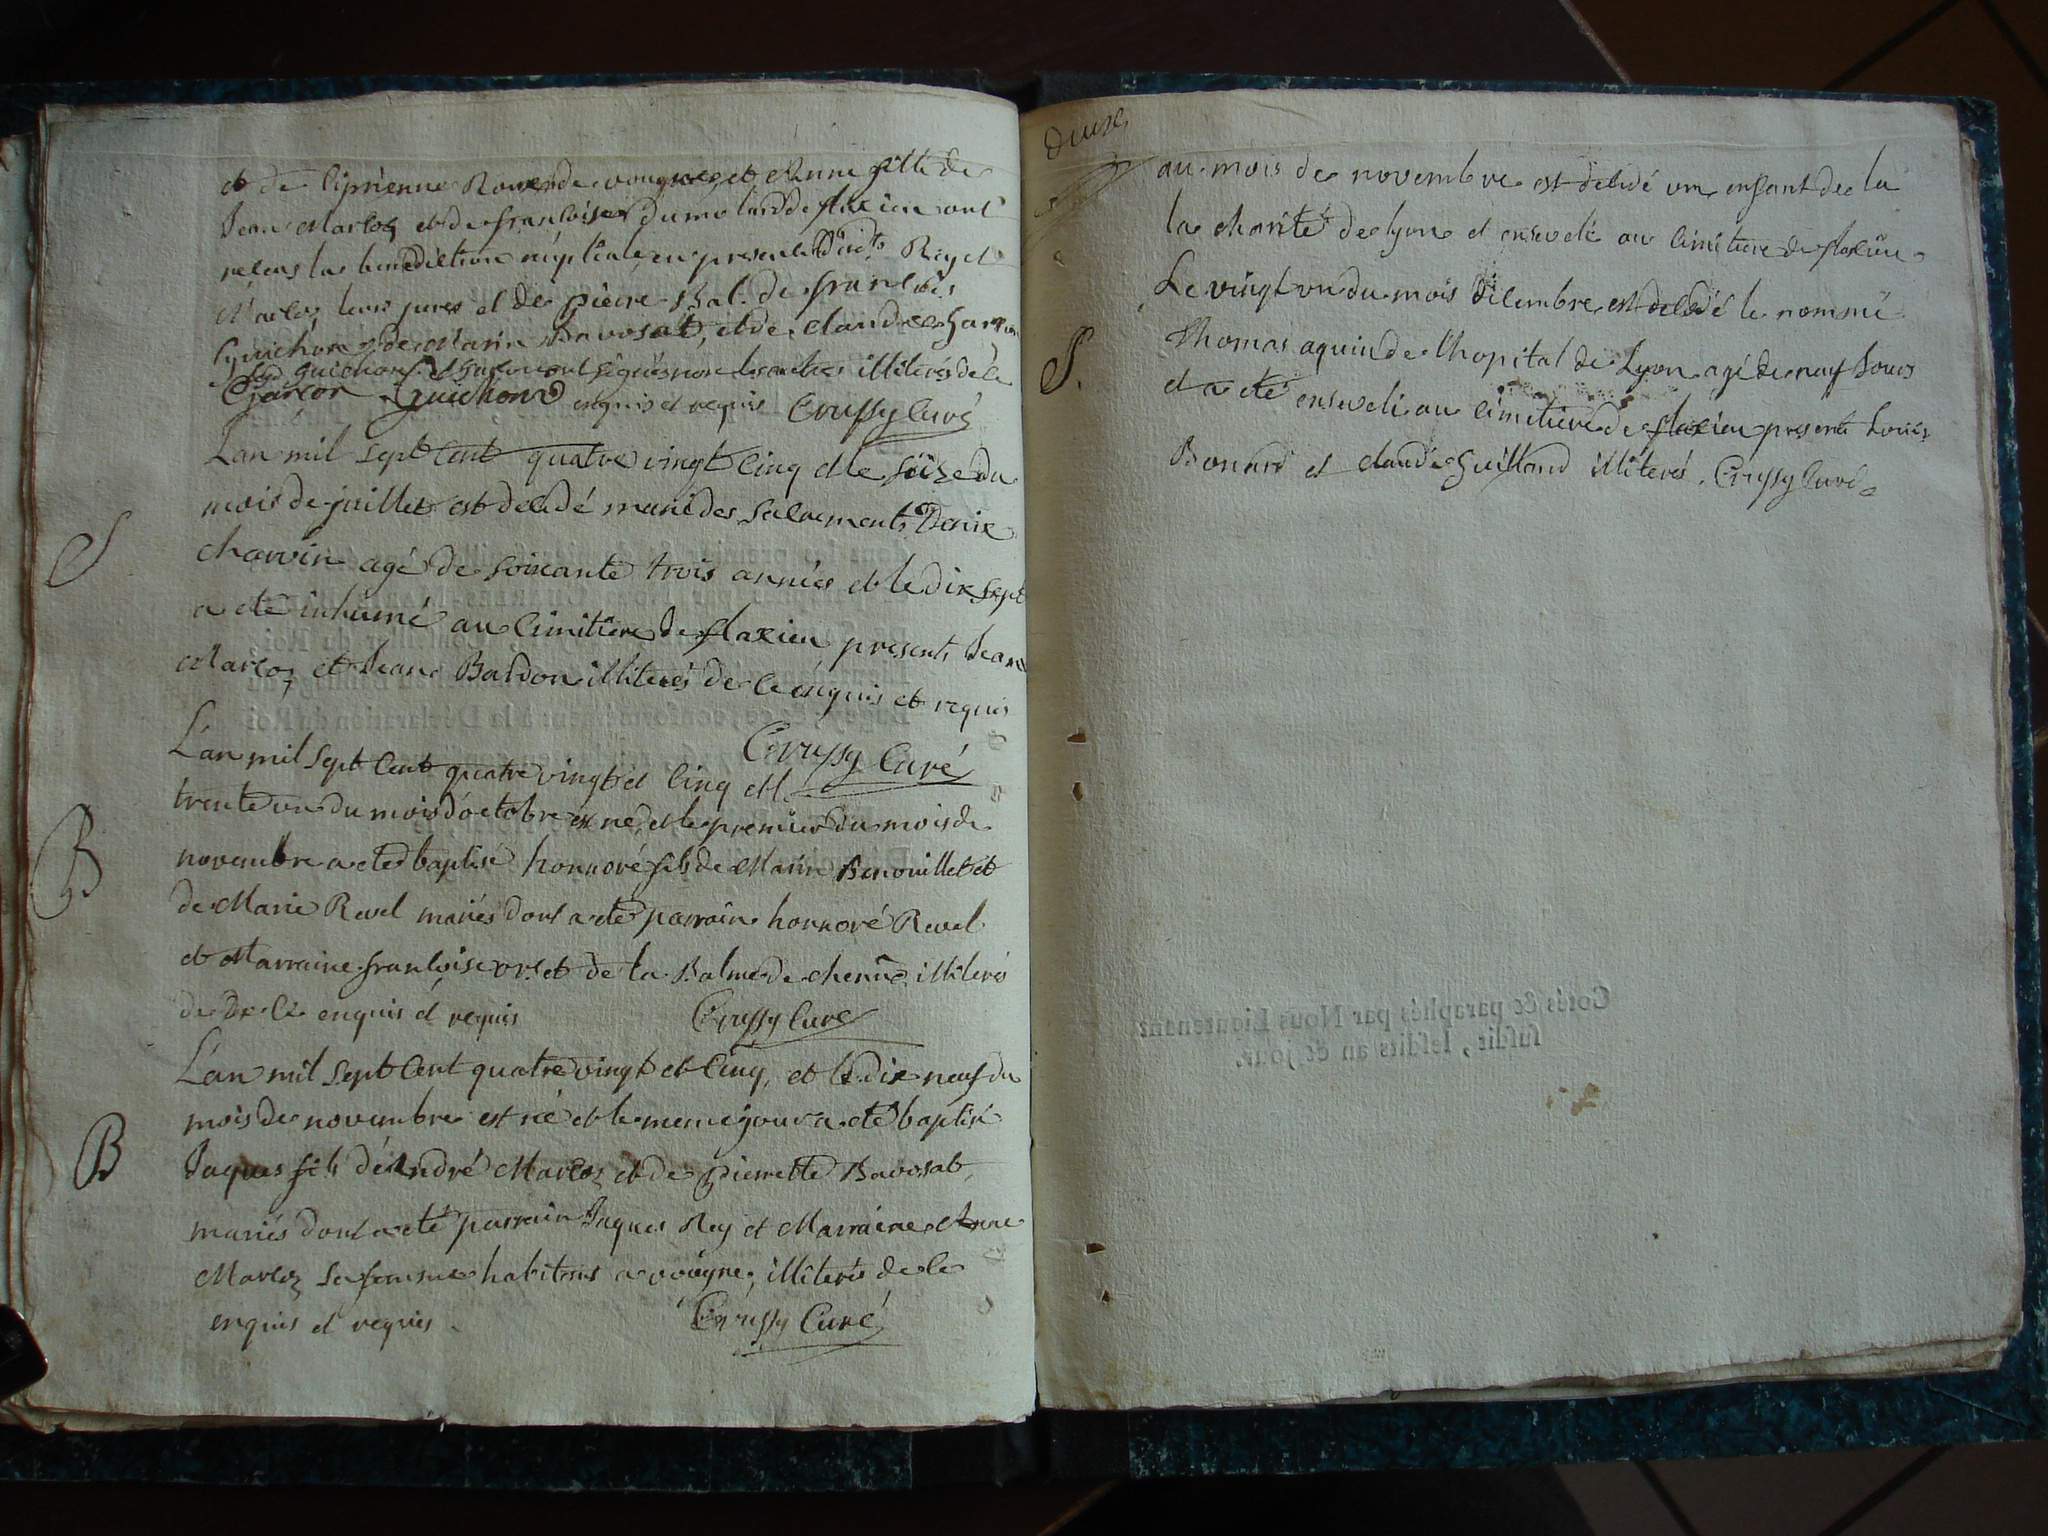 et de Ciprienne Roux de vougnes et Anne fille de
Jean Marcoz et de francoise du molard de flaxieu ont
receus la benediction nuptiale en presence Rey et
Marcoz leurs peres et de pierre de francois
Guichon de Marin Bavosat, et de Claude
Guichon non les autres illiterés de ce
Guichon enquis et requis Crussy Curé
L'an mil sept cent quatre vingt cinq et le seize du
mois de juillet est decedé muni des sacrements Denis
S
charvin agé de soixante trois années et le dix sept
a eté inhumé au cimitiere de flaxieu presents Jean
Marcoz et Jean Bardon illiterés de ce enquis et requis
Crussy Curé
L'an mil sept cent quatre vingt et cinq et le
trente un du mois d'octobre est né, et le premier du mois de
B
novembre a eté baptisé honnoré fils de Marin Benouillet et
de Marie Revel mariés dont a eté parrain honnoré Revel
et Marraine francoise orset de la Balme de illiterés
de ce enquis et requis Crussy Curé
L'an mil sept cent quatre vingt et cinq, et le dix neuf du
mois de novembre est né et le meme jour a eté baptisé
B
Jaques fils d'André Marcoz et de pierrette Bavosat,
mariés dont a eté parrain Jaques Rey et Marraine Anne
Marcoz sa femme habitans a vougne, illiterés de ce
enquis et requis Crussy Curé
deux
au mois de novembre est decedé un enfant de la
la charité de lyon et enseveli au cimitiere de flaxieu
Le vingt un du mois decembre est decedé le nommé
S.
Thomas aquin de l'hopital de Lyon agé de neuf jours
et a eté enseveli au cimetiere de flaxieu presents Louis
Bonard et claude Guilland illiterés. Crussy Curé
Cotés & paraphés par Nous Lieutenant
susdit, lesdits an & jour.